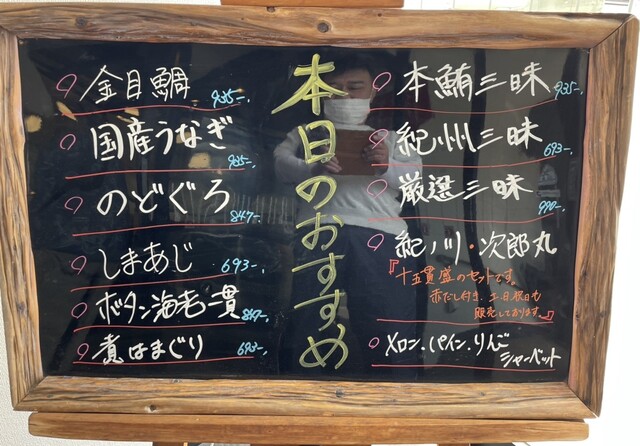 本日のおすすめ
本鮪三昧 935-,
紀州三昧 693-,
厳選三昧 990-,
紀ノ川・次郎丸
『十五貫盛のセットです。
赤だし付き、土、日、祝日も
販売しております。』
メロン、パイン、りんご
シャーベット
金目鯛 935-,
国産うなぎ 935-,
のどぐろ 847-,
しまあじ 693-,
ボタン海老一貫 847-,
煮はまぐり 693-,